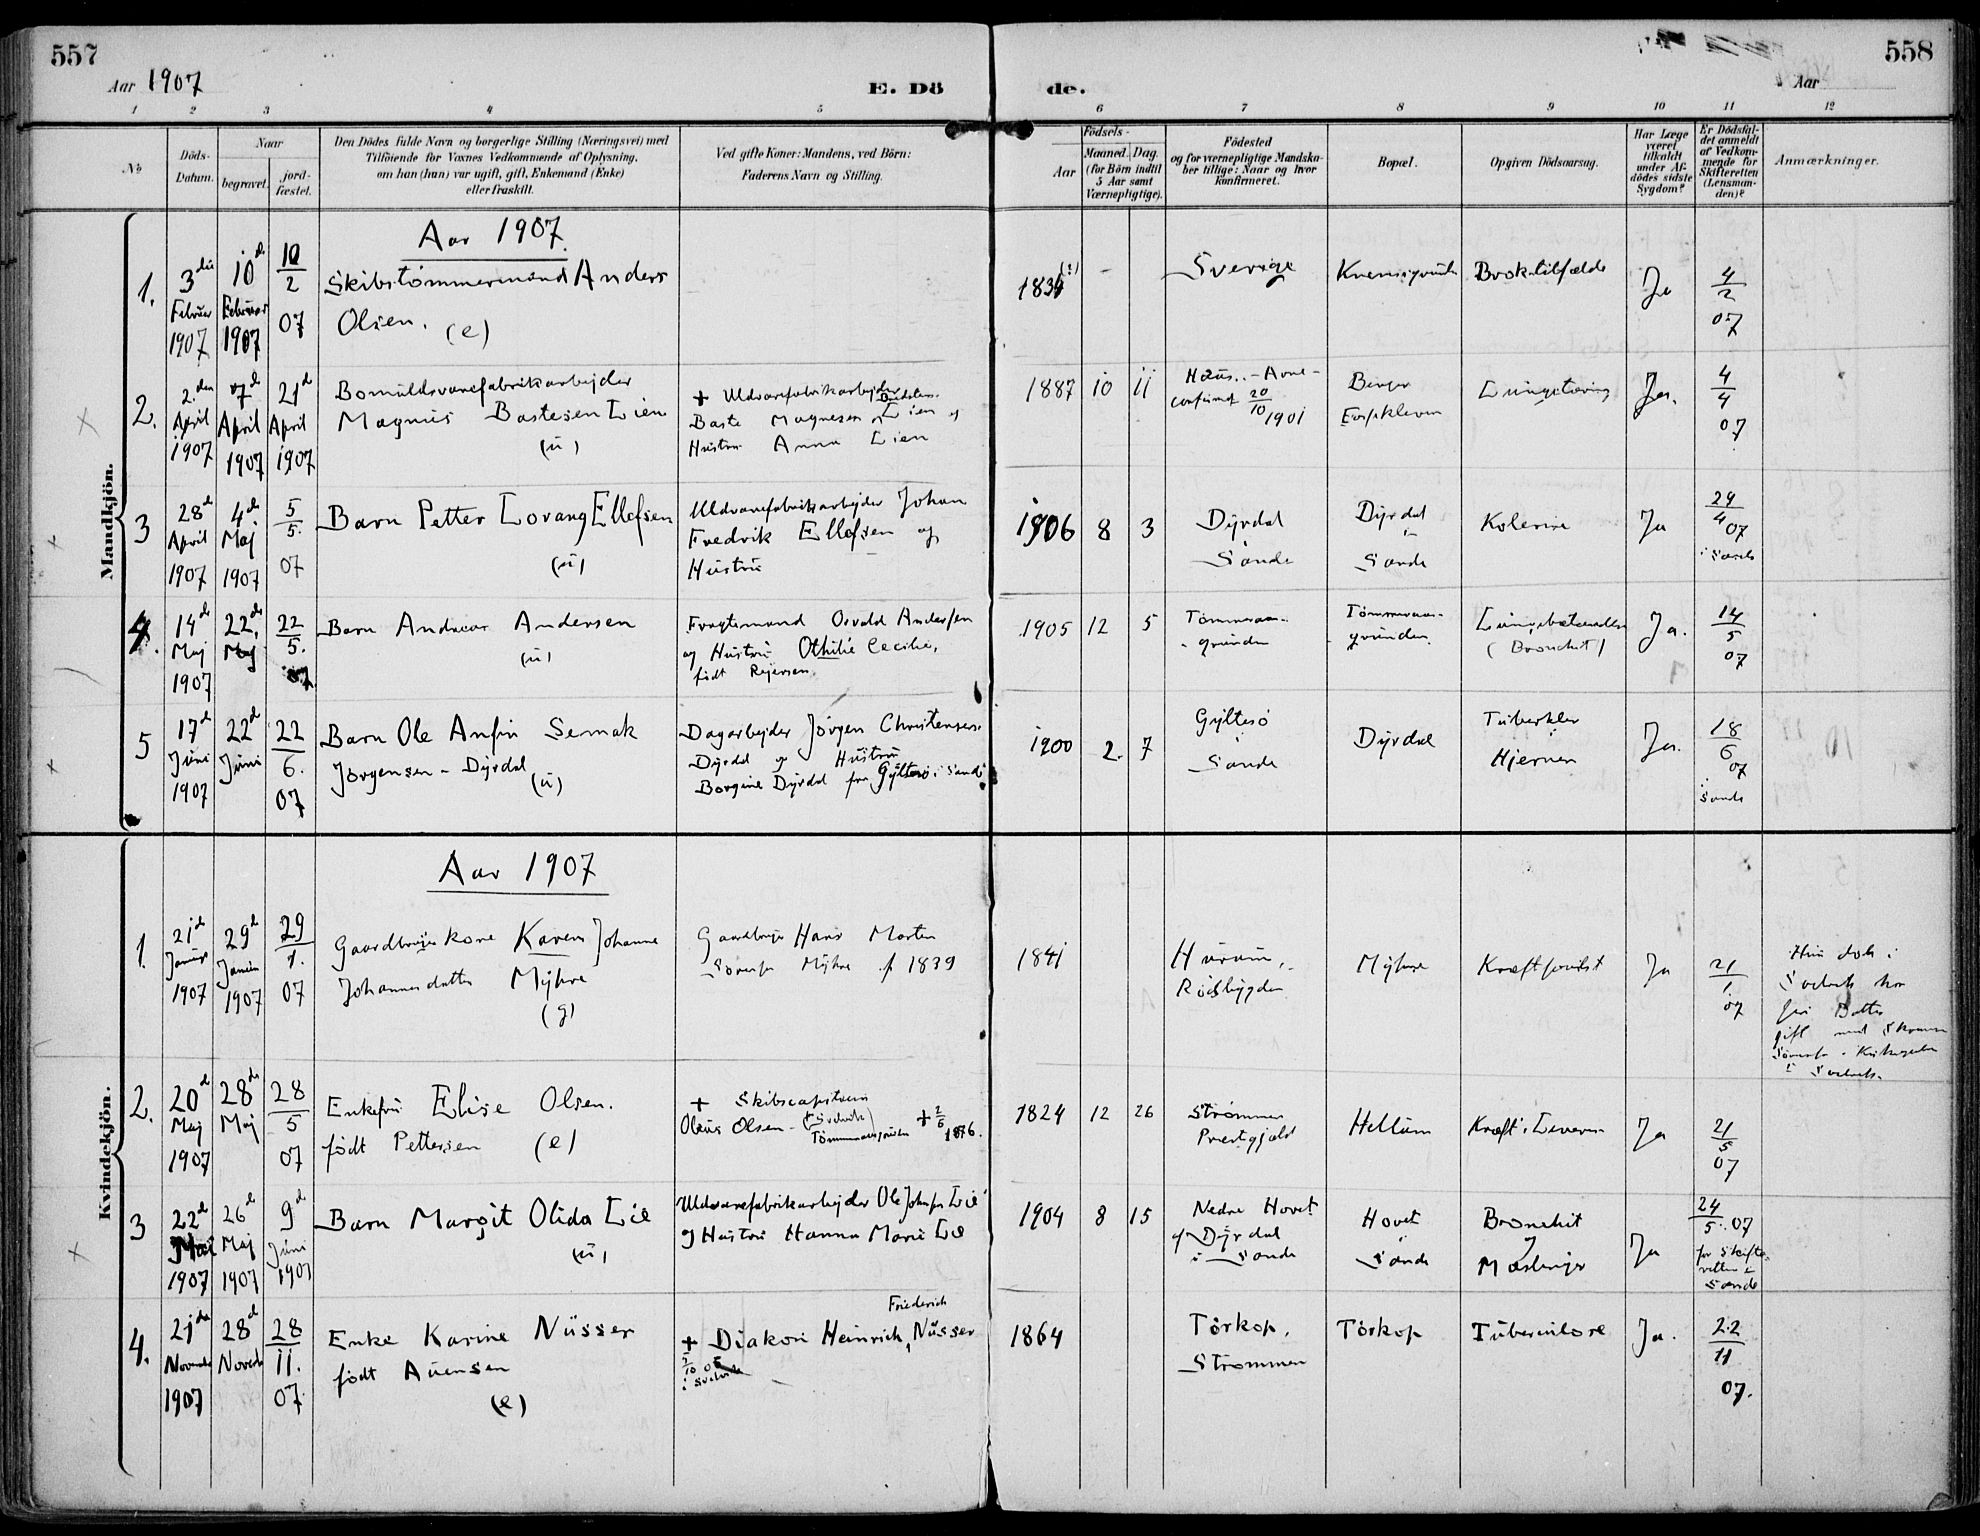 557
558
Aar 1907
E. Dö
de.
Aar
1 2 3 4 5 6 7 8 9 10 11 12
No
Döds-
Datum.
Naar
begravet.
jord-
fæstet.
Den Dödes fulde Navn og borgerlige Stilling (Næringsvei) med
Tilföiende for Voxnes Vedkommende af Oplysning,
om han (hun) var ugift, gift, Enkemand (Enke)
eller fraskilt.
Ved gifte Koner: Mandens, ved Börn:
Faderens Navn og Stilling.
Födsels-
Aar
Maaned. Dag.
(for Börn indtil
5 Aar samt
Værnepligtige).
Födested
og for værnepligtige Mandska-
ber tillige: Naar og hvor
konfirmeret.
Bopæl.
Opgiven Dödsaarsag.
Har Læge
været
tilkaldt
under Af-
dödes sidste
Sygdom?
Er Dödsfal-
det anmeldt
af Vedkom-
mende for
Skifteretten
(Lensman-
den)?
Anmærkninger.
Mandkjön.
Aar 1907
1.
3die
Februar
1907
10de
Februar
1907
10/2
07
Skibstømmermand Anders
Olsen. (e)
1834 (?)
-
Sverige
Broktilfælde
Ja
4/2
07
2.
2den
April
1907
7d
April
1907
21d
April
1907
Bomuldsvarefabrikarbejder
Magnus Bastesen Lien
(u)
+ Uldvarefabrikarbejder
Baste Magnesen Lien og
Hustru Anna Lien
1887 10 11
Haus - Arne -
confirmet 20/10 1901
Berger
Lungetæring
Ja.
4/4
07
3
28d
April
1907
4de
Maj
1907
5/5.
07
Barn Petter Lorang Ellefsen
(u)
Uldvarefabrikarbejder Johan
Fredrik Ellefsen og
Hustru
1906 8 3
Dyrdal
Sande
Dyrdal
i
Sande
Kolerine
Ja
29/4 07
i Sande
4.
14d
Maj
1907
22de
Maj
22/5.
07
Barn Andreas Andersen
(u)
Fragtemand Osvald Andersen
og Hustru Othilie Cecilie,
født Rejersen
1905 12 5
Tømmeraas-
grunden
Tømmeraas-
grunden
Lungebetændelse
(Bronchit)
Ja.
14/5
07
5
17d
Juni
1907
22d
Juni
22/6.
07
Barn Ole Anfin Semak
Jørgensen - Dyrdal
(u)
Dagarbejder Jørgen Christensen
Dyrdal og Hustru
Borgine Dyrdal fra Gyltesø i Sande
1900 2. 7
Gyltesø
i
Sande
Dyrdal
Tuberkler
i
Hjernen
Ja.
18/6
07
i
Sande
Kvindekjön.
Aar 1907
1.
21d
Januar
1907
29d
Januar
1907
29/1.
07
Gaardbruger kone Karen Johanne
Johannesdatter Myhre
(g)
Gaardbruger Hans Morten
Sørensen Myhre f. 1839
1841
Hurum,
Rødsbygden
Myhre
Kræft
Ja
21/1
07
Hun døde i
Svelvik hos
sin Datter
gift med
i Svelvik.
2.
20d
Maj
1907
28de
Maj
28/5
07
Enkefru Elise Olsen.
født Pettersen (e)
+ Skibscaptein
Olaus Olsen - (Svelvik)
Tømmeraasgrunden + 2/6 1876.
1824 12 26
Strømmen
Prestegjeld
Hellum
Kræft i Leveren
Ja
21/5
07
3
22d
Mai
1907
26d
Maj
1907
9d
Juni
1907
Barn Margit Olida Lie
(u)
Uldvarefabrikarbejder Ole Johnsen Lie
og Hustru Hanna Marie Lie
1904 8 15
Nedre Hovet
af Dyrdal
i Sande
Hovet
i
Sande
Bronchit
og
Mæslinger
Ja
24/5. 07
for Skifte-
retten i
Sande
4.
21de
November
1907
28d
Novemb
28/11.
07.
Enke Karine Nüsser
født Auensen
(e)
Friederich
+ Diakon Heinrich, Nüsser
2/10 05
i Svelvik
1864
Tørkop,
Strømmen
Tørkop
Tuberculose
Ja.
22/11
07.